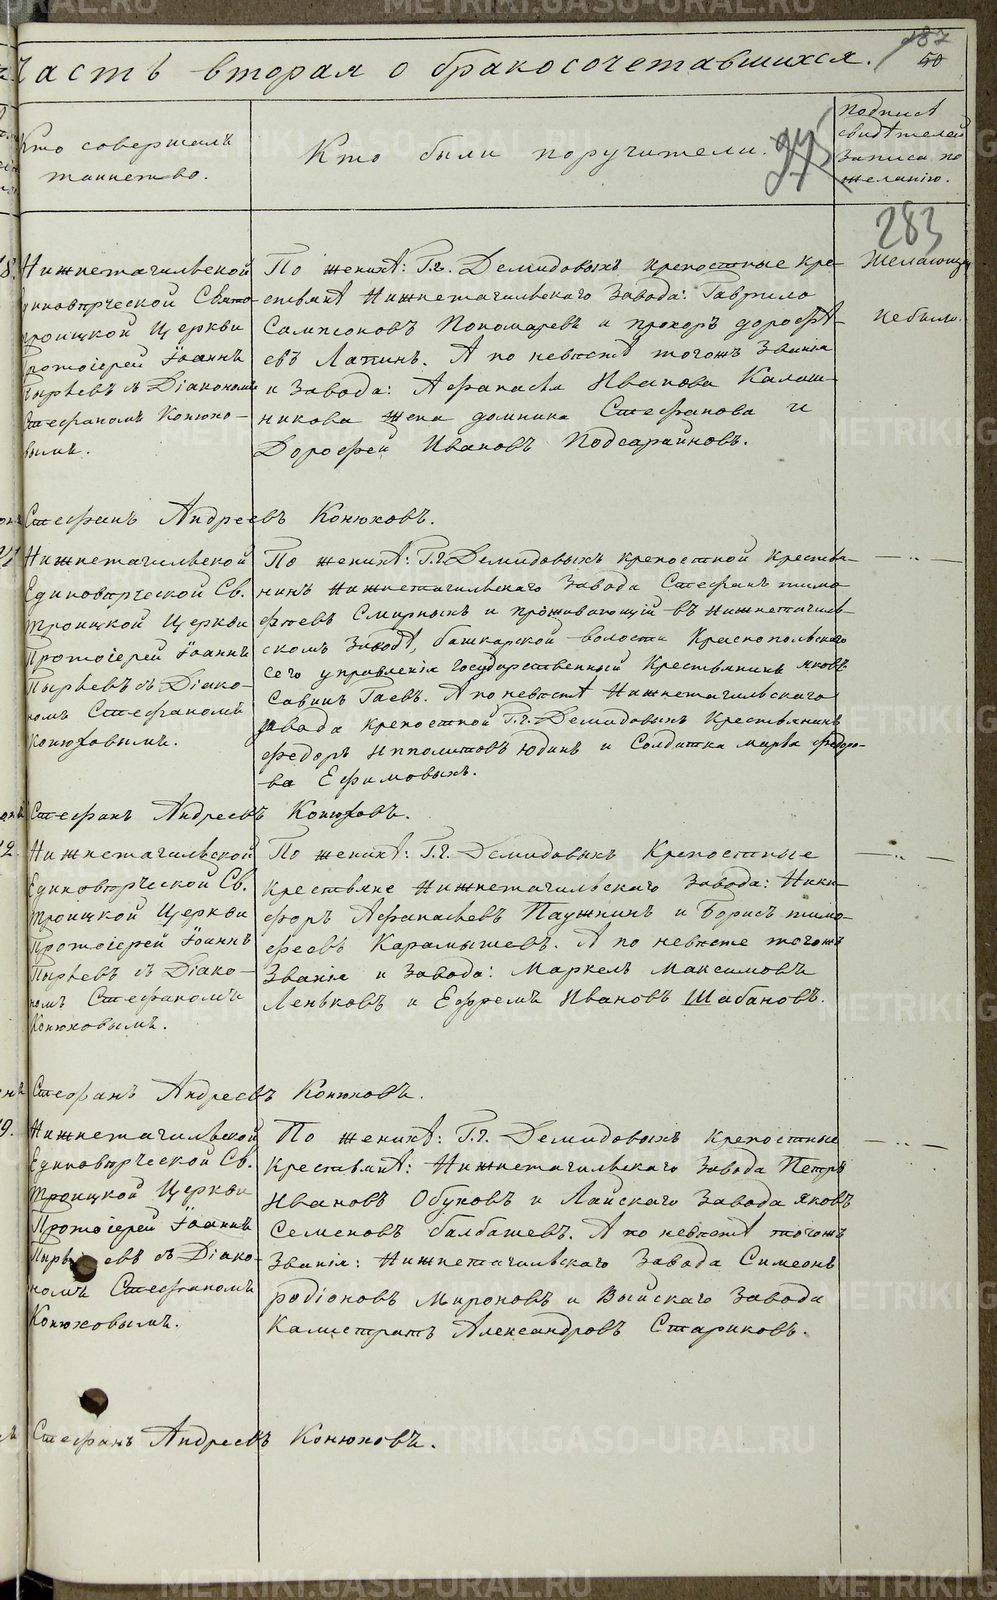 Часть вторая о бракосочетавшихся.
187
50
Кто совершалъ
таинство.
Кто были поручители.
Подписъ
свидѣтелей
записи по
желанію.
283
Нижнетагильской
Единовѣрческой Свято-
троицкой Церкви
Протоіерей Іоаннъ
Пырьевъ съ Діакономъ
Стефаномъ Конюхо-
вымъ.
По женихѣ: Г.г. Демидовыхъ крепостные кре-
стьянѣ Нижнетагильскаго Завода: Гаврило
Сампсоновъ Пономаревъ и прохоръ дорофѣ-
евъ Лапинъ. А по невѣстѣ тогожъ Званія
и Завода: Афанасья Иванова Калаш-
никова жена домнина Стефанова и
Дорофей Ивановъ Подсарайновъ.
Желающихъ
небыло.
Стефанъ Андреевъ Конюховъ.
Нижнетагильской
Единовѣрческой Св.
Троицкой Церкви
Протоіерей Іоаннъ
Пырьевъ съ Діако-
номъ Стефаномъ
Конюховымъ.
По женихѣ: Г.г. Демидовыхъ крепостной Крестья-
нинъ Нижнетагильскаго Завода Стефанъ тимо-
феевъ Смирныхъ и проживающій въ Нижнетагиль-
скомъ Заводѣ, башкарской волости Краснопольскаго
Сего управленія Государственный Крестьянинъ яковъ
Савинъ Гаевъ. А по невѣстѣ Нижнетагильскаго
завода крепостной Г.г. Демидовыхъ Крестьянинъ
федоръ Ипполитовъ Юдинъ и Солдатка марѳа федоро-
ва Ефимовыхъ.
Стефанъ Андреевъ Конюховъ.
Нижнетагильской
Единовѣрческой Св.
Троицкой Церкви
Протоіерей Іоаннъ
Пырьевъ съ Діако-
номъ Стефаномъ
Конюховымъ.
По женихѣ: Г.г. Демидовыхъ Крепостные
крестьяне Нижнетагильскаго Завода: Ники-
форъ Афанасьевъ Паужнинъ и Борисъ тимо-
феевъ Карамышевъ. А по невѣсте тогожъ
Званія и Завода: Маркелъ Максимовъ
Леньковъ и Ефремъ Ивановъ Шабановъ.
Стефанъ Андреевъ Конюховъ.
Нижнетагильской
Единовѣрческой Св.
Троицкой Церкви
Протоіерей Іоаннъ
Пырьевъ съ Діако-
номъ Стефаномъ
Конюховымъ.
По женихѣ: Г.г. Демидовыхъ Крепостные
Крестьянѣ: Нижнетагильскаго Завода Петръ
Ивановъ Обуховъ и Лайскаго Завода яковъ
Семеновъ балбашевъ. А по невѣстѣ тогожъ
Званія: Нижнетагильскаго Завода Симеонъ
родіоновъ Мироновъ и Выйскаго Завода
Калистратъ Александровъ Стариковъ.
Стефанъ Андреевъ Конюховъ.
METRIKI.GASO-URAL.RU